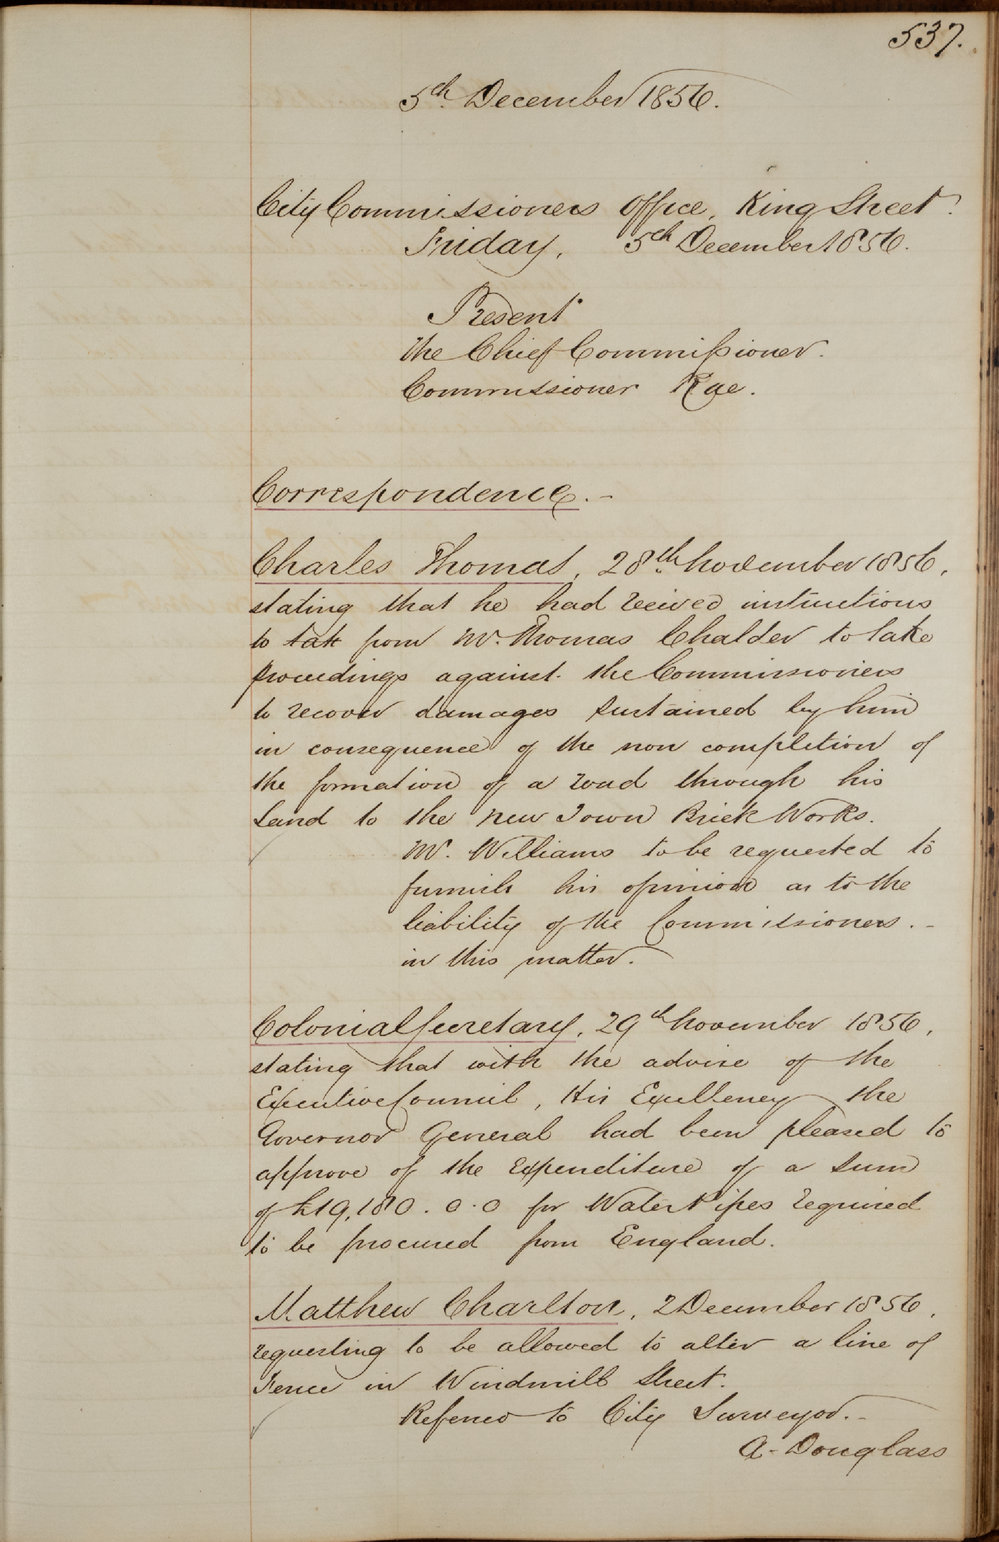 537.
5th December 1856.
City Commissioners Office, King Street.
Friday, 5th December 1856.
Present
The Chief Commissioner.
Commissioner Rae.
Correspondence.-
Charles Thomas, 28th November 1856,
stating that he had received instructions
to take from Mr. Thomas Chalder to take
proceedings against the Commissioners
to recover damages sustained by him
in consequence of the non completion of
the formation of a road through his
Land to the New Town Brick Works.
Mr. Williams to be requested to
furnish his opinion as to the
liability of the Commissioners.-
in this matter.
Colonial Secretary, 29th November 1856,
stating that with the advise of the
Executive Council, His Excellency the
Governor General had been pleased to
approve of the expenditure of a sum
of £19,180.0.0 for Water Pipes required
to be procured from England.
Matthew Charlton, 2 December 1856,
requesting to be allowed to alter a line of
Fence in Windmill Street.
Referred to City Surveyor.-
A. Douglass